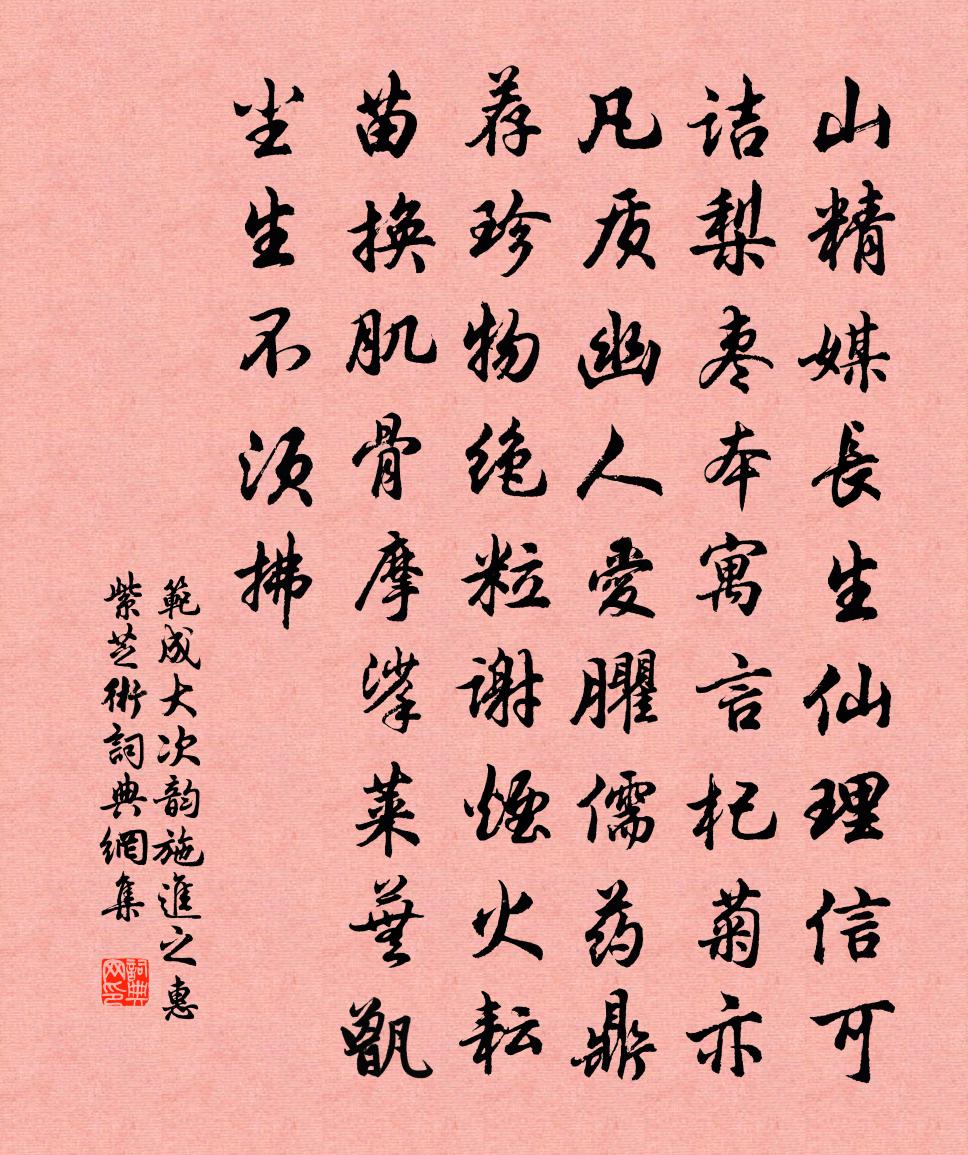 山精媒長生仙理信可
詰梨枣本寓言杞菊亦
凡质幽人愛臞儒药鼎
荐珍物绝粒谢煙火耘
苗换肌骨摩挲莱蕪甑
坐生不须拂
範成大次韵施進之惠
紫芝術詞典網集
詞典网印